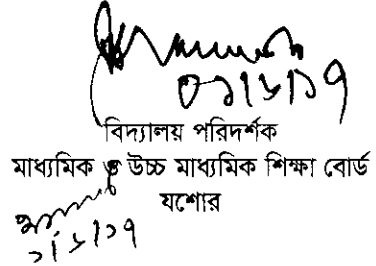 ০১/৮/১৭
বিদ্যালয় পরিদর্শক
মাধ্যমিক ও উচ্চ মাধ্যমিক শিক্ষা বোর্ড
যশোর